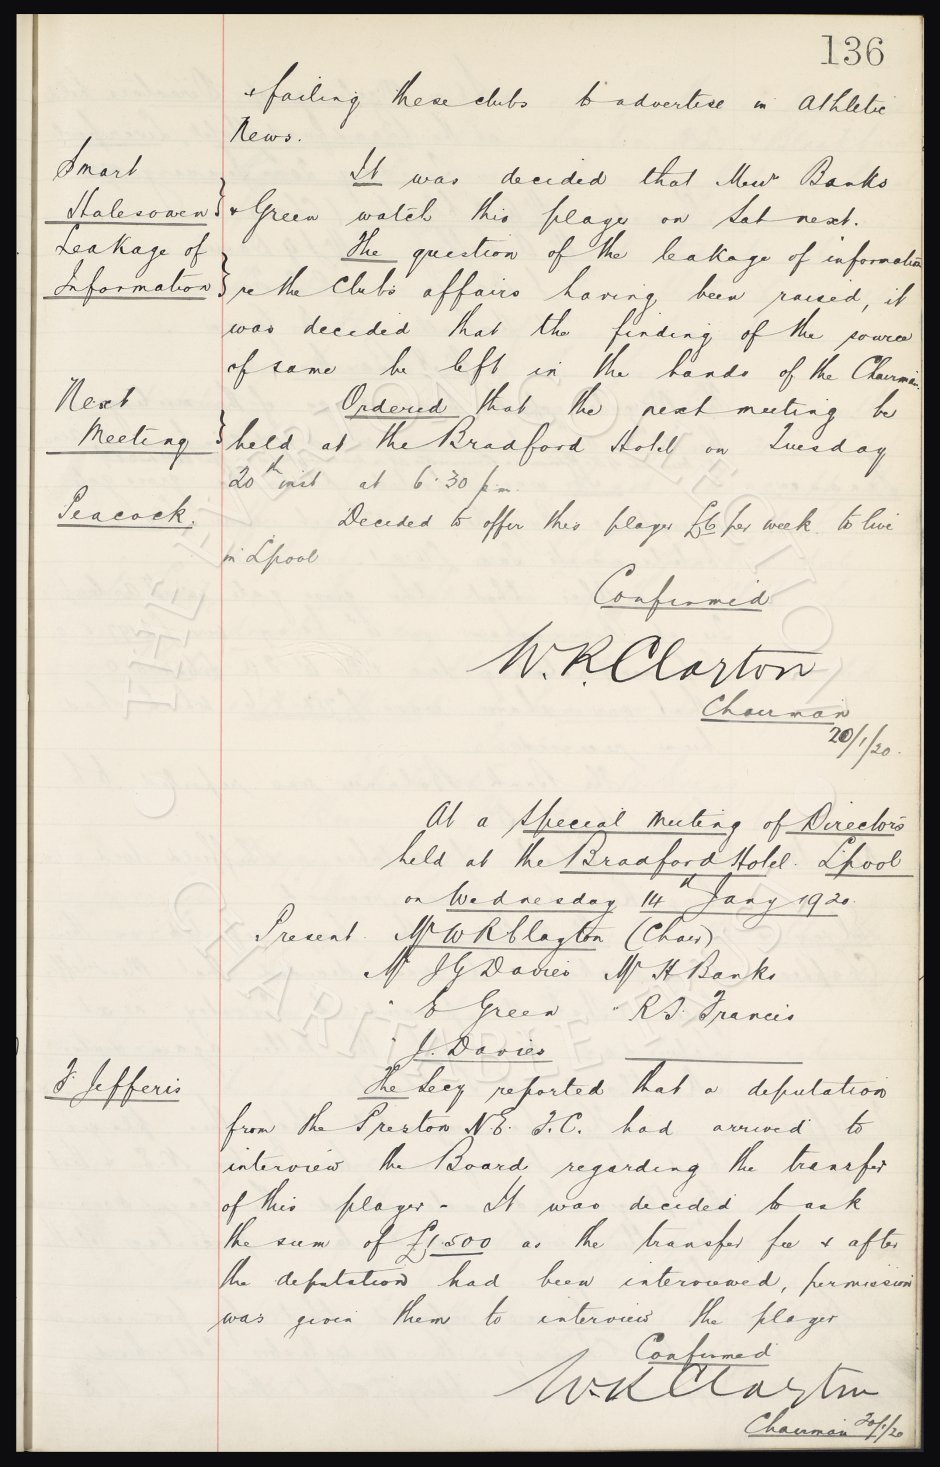 136
& failing these clubs to advertise in Athletic
News.
Smart
Halesowen
It was decided that Messrs Banks
& Green watch this player on Sat next.
Leakage of
Information
The question of the leakage of information
re the Club's affairs having been raised, it
was decided that the finding of the source
of same be left in the hands of the Chairman.
Next
Meeting
Ordered that the next meeting be
held at the Bradford Hotel on Tuesday
20th inst at 6.30 p.m.
Peacock.
Decided to offer this player £6 per week to live
in L'pool
Confirmed
W.R. Clayton
Chairman
20/1/20.
At a Special Meeting of Directors
held at the Bradford Hotel. L'pool
on Wednesday 14th Jany 1920.
Present. Mr W R Clayton (Chair)
Mr J G Davies Mr H Banks
" E Green " R.S. Francis
" J. Davies
F. Jefferis
The Secy reported that a deputation
from the Preston N.E. F.C. had arrived to
interview the Board regarding the transfer
of this player - It was decided to ask
the sum of £1500 as the transfer fee & after
the deputation had been interviewed, permission
was given them to interview the player
Confirmed
W R Clayton
Chairman 20/1/20
THE EVERTON COLLECTION
CHARITABLE TRUST